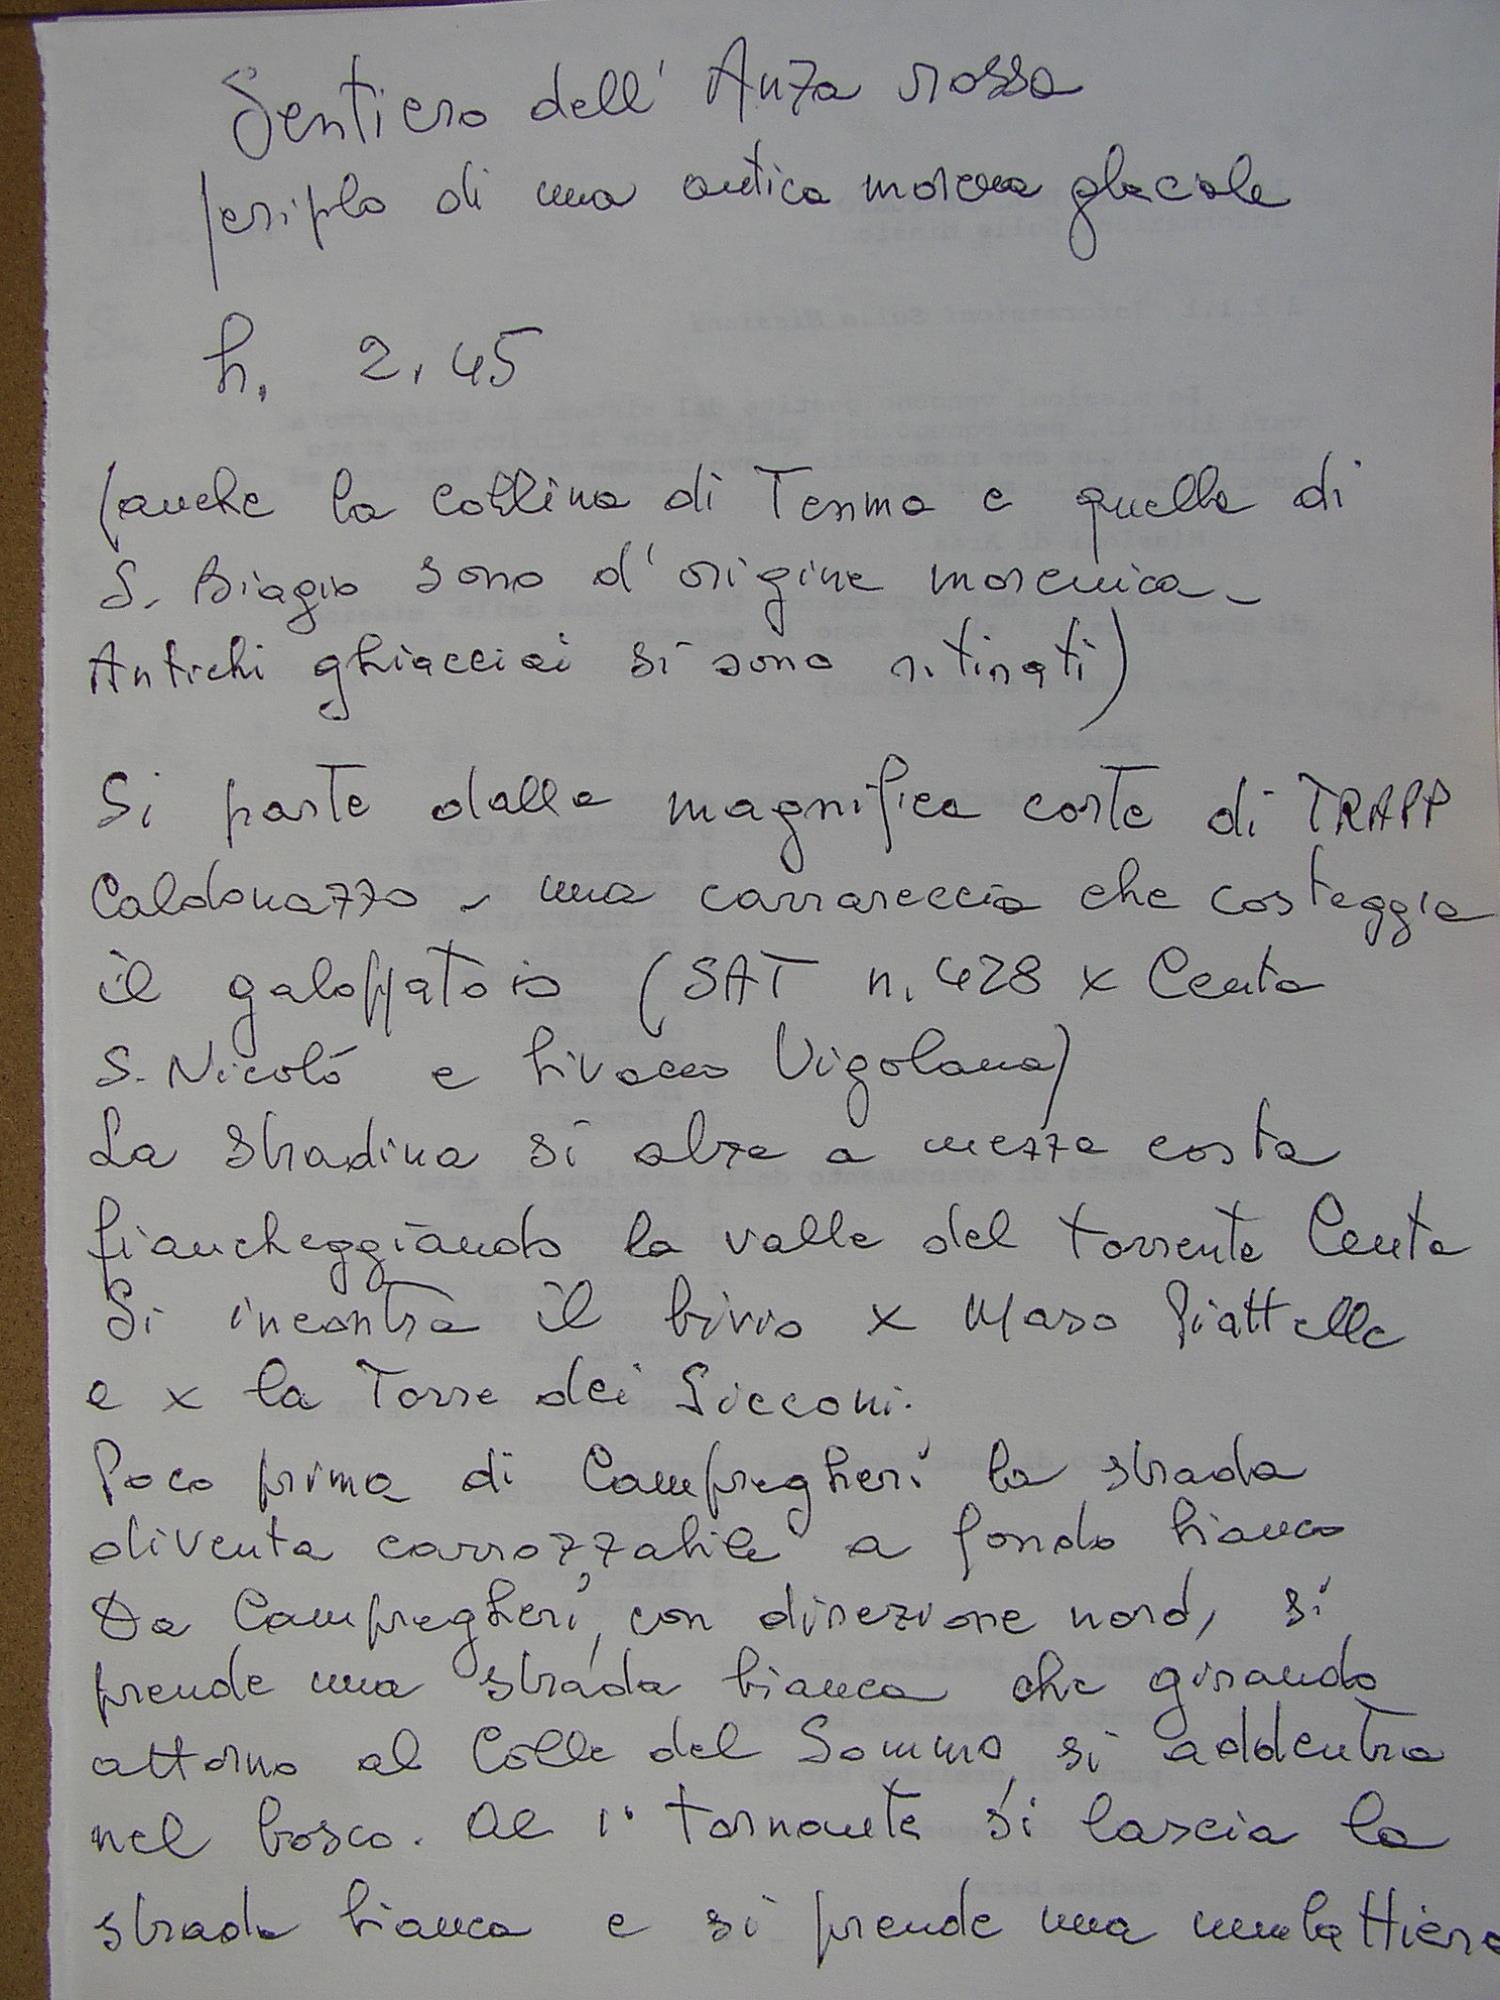 Sentiero dell' Anza rossa
periplo di una antica morena glaciale
h. 2.45
(anche la collina di Tenna e quella di
S. Biagio sono d'origine morenica -
Antichi ghiacciai si sono ritirati)
Si parte dalla magnifica corte di TRAPP
Caldonazzo - una carrareccia che costeggia
il galoppatoio (SAT n. 428 x Centa
S. Nicolò e bivacco Vigolana)
La stradina si alza a mezza costa
fiancheggiando la valle del torrente Centa
Si incontra il bivio x Maso Piattelle
e x la Torre dei Sicconi.
Poco prima di Campregheri la strada
diventa carrozzabile a fondo bianco
Da Campregheri, con direzione nord, si
prende una strada bianca che girando
attorno al Colle del Sommo, si addentra
nel bosco. Al 1° tornante si lascia la
strada bianca e si prende una mulattiera